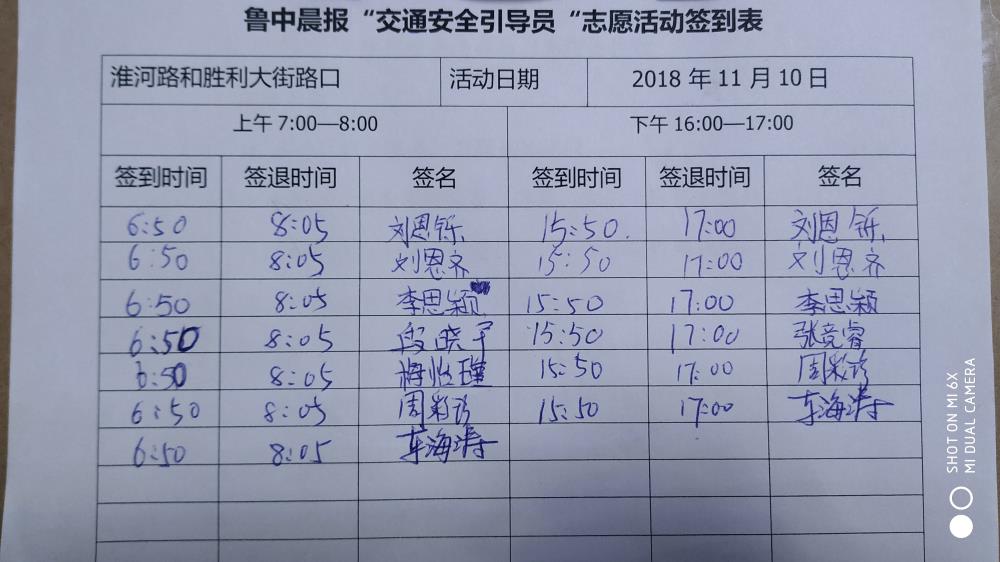 鲁中晨报“交通安全引导员“志愿活动签到表
淮河路和胜利大街路口 活动日期 2018 年 11 月 10 日
上午 7:00—8:00 下午 16:00—17:00
签到时间 签退时间 签名 签到时间 签退时间 签名
6:50 8:05 刘恩铄 15:50. 17:00 刘恩铄
6:50 8:05 刘恩齐 15:50 17:00 刘恩齐
6:50 8:05 李思颖 15:50 17:00 李思颖
6:50 8:05 段晓军 15:50 17:00 张竞睿
6:50 8:05 梅怡瑾 15:50 17:00 周彩珍
6:50 8:05 周彩珍 15:50 17:00 车海涛
6:50 8:05 车海涛
SHOT ON MI 6X
MI DUAL CAMERA